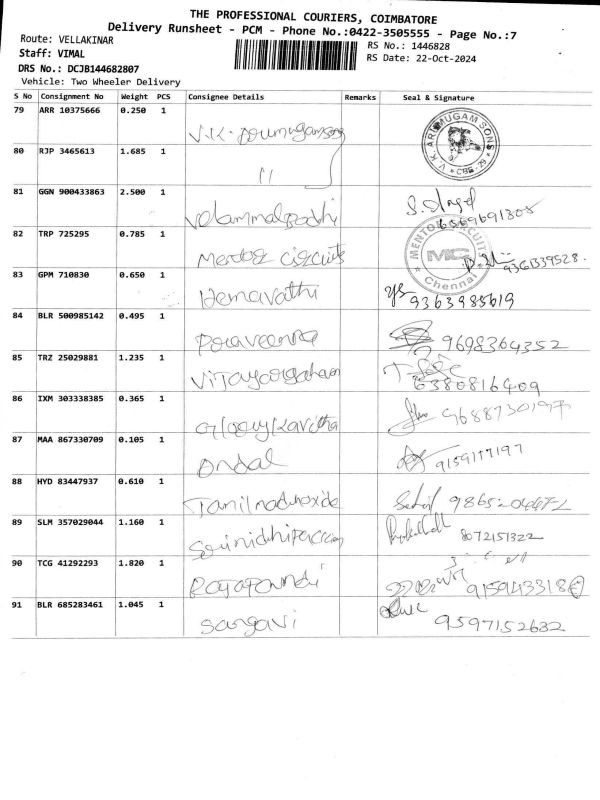 THE PROFESSIONAL COURIERS, COIMBATORE
Delivery Runsheet - PCM - Phone No.:0422-3505555 - Page No.:7
Route: VELLAKINAR
RS No.: 1446828
Staff: VIMAL
RS Date: 22-Oct-2024
DRS No.: DCJB144682807
Vehicle: Two Wheeler Delivery
S No Consignment No Weight PCS Consignee Details Remarks Seal & Signature
79 ARR 10375666 0.250 1 V.K. V. K. ARUMUGAM SONS CBE-29
80 RJP 3465613 1.685 1 11
81 GGN 900433863 2.500 1
82 TRP 725295 0.785 1 Mentor circuits MENTOR CIRCUIT MC Chennai 9361339528
83 GPM 710830 0.650 1 Hemavathi 9363985619
84 BLR 500985142 0.495 1 Praveenna 9698364352
85 TRZ 25029881 1.235 1 6380816409
86 IXM 303338385 0.365 1 9688730197
87 MAA 867330709 0.105 1 Andal 9159117197
88 HYD 83447937 0.610 1 98652
89 SLM 357029044 1.160 1 8072151322
90 TCG 41292293 1.820 1 915943318
91 BLR 685283461 1.045 1 Sangavi 9597152632